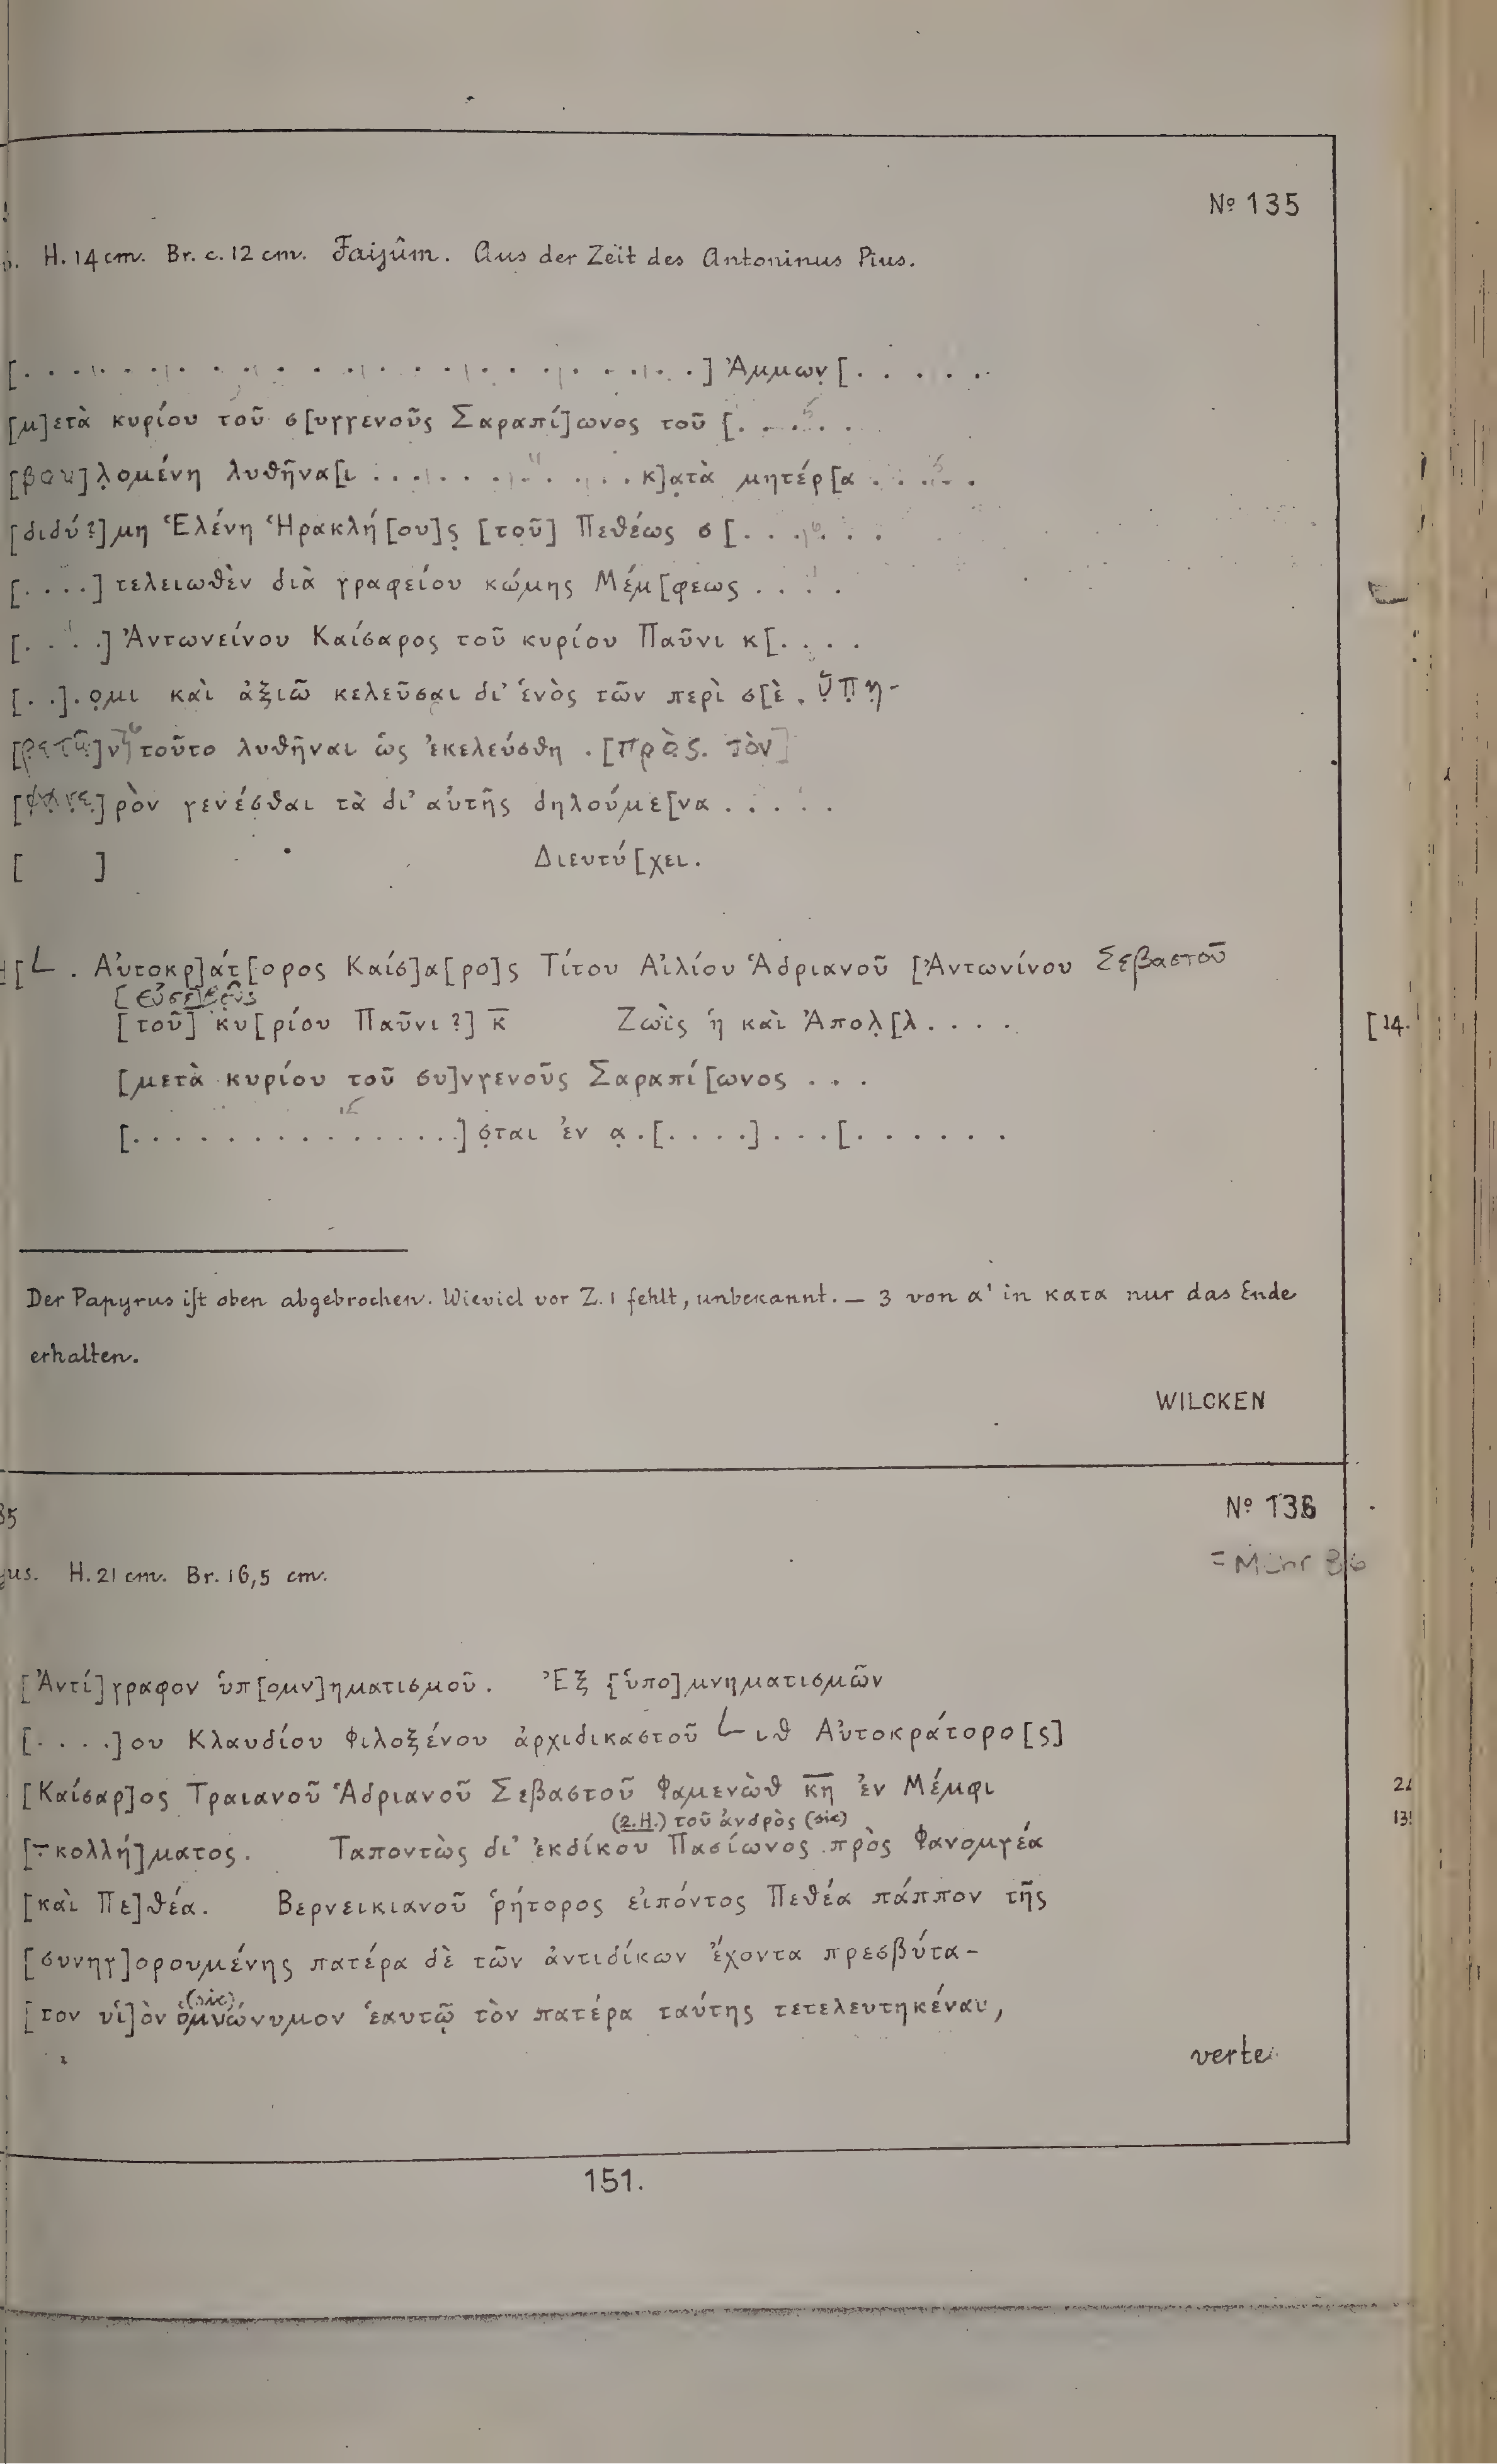 Nº 135
H. 14 cm. Br. c. 12 cm. Faijûm. Aus der Zeit des Antoninus Pius.
[. . . . . . . . . . . . . . . . . . . .] Ἀμμων̣ [. . . . .
[μ]ετὰ κυρίου τοῦ σ[υγγενοῦς Σαραπί]ωνος τοῦ [. . . . .
[βου]λ̣ομένη λυθῆνα[ι . . . . . . . . . . . κ]α̣τὰ μητέρ[α . . . . .
[διδύ?]μη Ἑλένη Ἡρακλή[ου]ς̣ [τοῦ] Πεθέως σ[. . . . . .
[. . . .] τελειωθὲν διὰ γραφείου κώμης Μέμ[φεως . . . .
[. . . .] Ἀντωνείνου Καίσαρος τοῦ κυρίου Παῦνι κ[. . . .
[. .]. ο̣μι καὶ ἀξιῶ κελεῦσαι δι’ ἑνὸς τῶν περὶ σ[ὲ . ὑπη-
[ρετῶ]ν τοῦτο λυθῆναι ὡς ἐκελεύσθη . [πρὸς. τὸν]
[φανε]ρὸν γενέσθαι τὰ δι’ αὐτῆς δηλούμε[να . . . . .
[ ] Διευτύ[χει.
[L . Αὐτοκρ]ατ[ορος Καίσ]α[ρο]ς Τίτου Αἰλίου Ἁδριανοῦ [Ἀντωνίνου Σεβαστοῦ
[εὐσεβοῦς
[τοῦ] κυ[ρίου Παῦνι?] κ̅ Ζωῒς ἡ καὶ Ἀπολ̣[λ. . . .
[14.
[μετὰ κυρίου τοῦ συ]νγενοῦς Σαραπί[ωνος . . .
[. . . . . . . . . . . . . . .] σ̣ται ἐν α̣ . [. . . .] . . . [. . . . . .
Der Papyrus ist oben abgebrochen. Wieviel vor Z. 1 fehlt, unbekannt. — 3 von α' in κατα nur das Ende
erhalten.
WILCKEN
Nº 136
H. 21 cm. Br. 16,5 cm.
[Ἀντί]γραφον ὑπ[ομν]ηματισμοῦ. Ἐξ [ὑπο]μνηματισμῶν
[. . . .]ου Κλαυδίου Φιλοξένου ἀρχιδικαστοῦ L ιθ Αὐτοκράτορο[ς]
[Καίσαρ]ος Τραιανοῦ Ἁδριανοῦ Σεβαστοῦ Φαμενὼθ κ̅η̅ ἐν Μέμφι
(2.H.) τοῦ ἀνδρὸς (sic)
[- κολλή]ματος. Ταποντὼς δι’ ἐκδίκου Πασίωνος πρὸς Φανομγέα
[καὶ Πε]θέα. Βερνεικιανοῦ ῥήτορος εἰπόντος Πεθέα πάππον τῆς
[συνηγ]ορουμένης πατέρα δὲ τῶν ἀντιδίκων ἔχοντα πρεσβύτα-
(sic)
[τον υἱ]ὸν ὁμνώνυμον ἑαυτῷ τὸν πατέρα ταύτης τετελευτηκέναι,
verte
151.